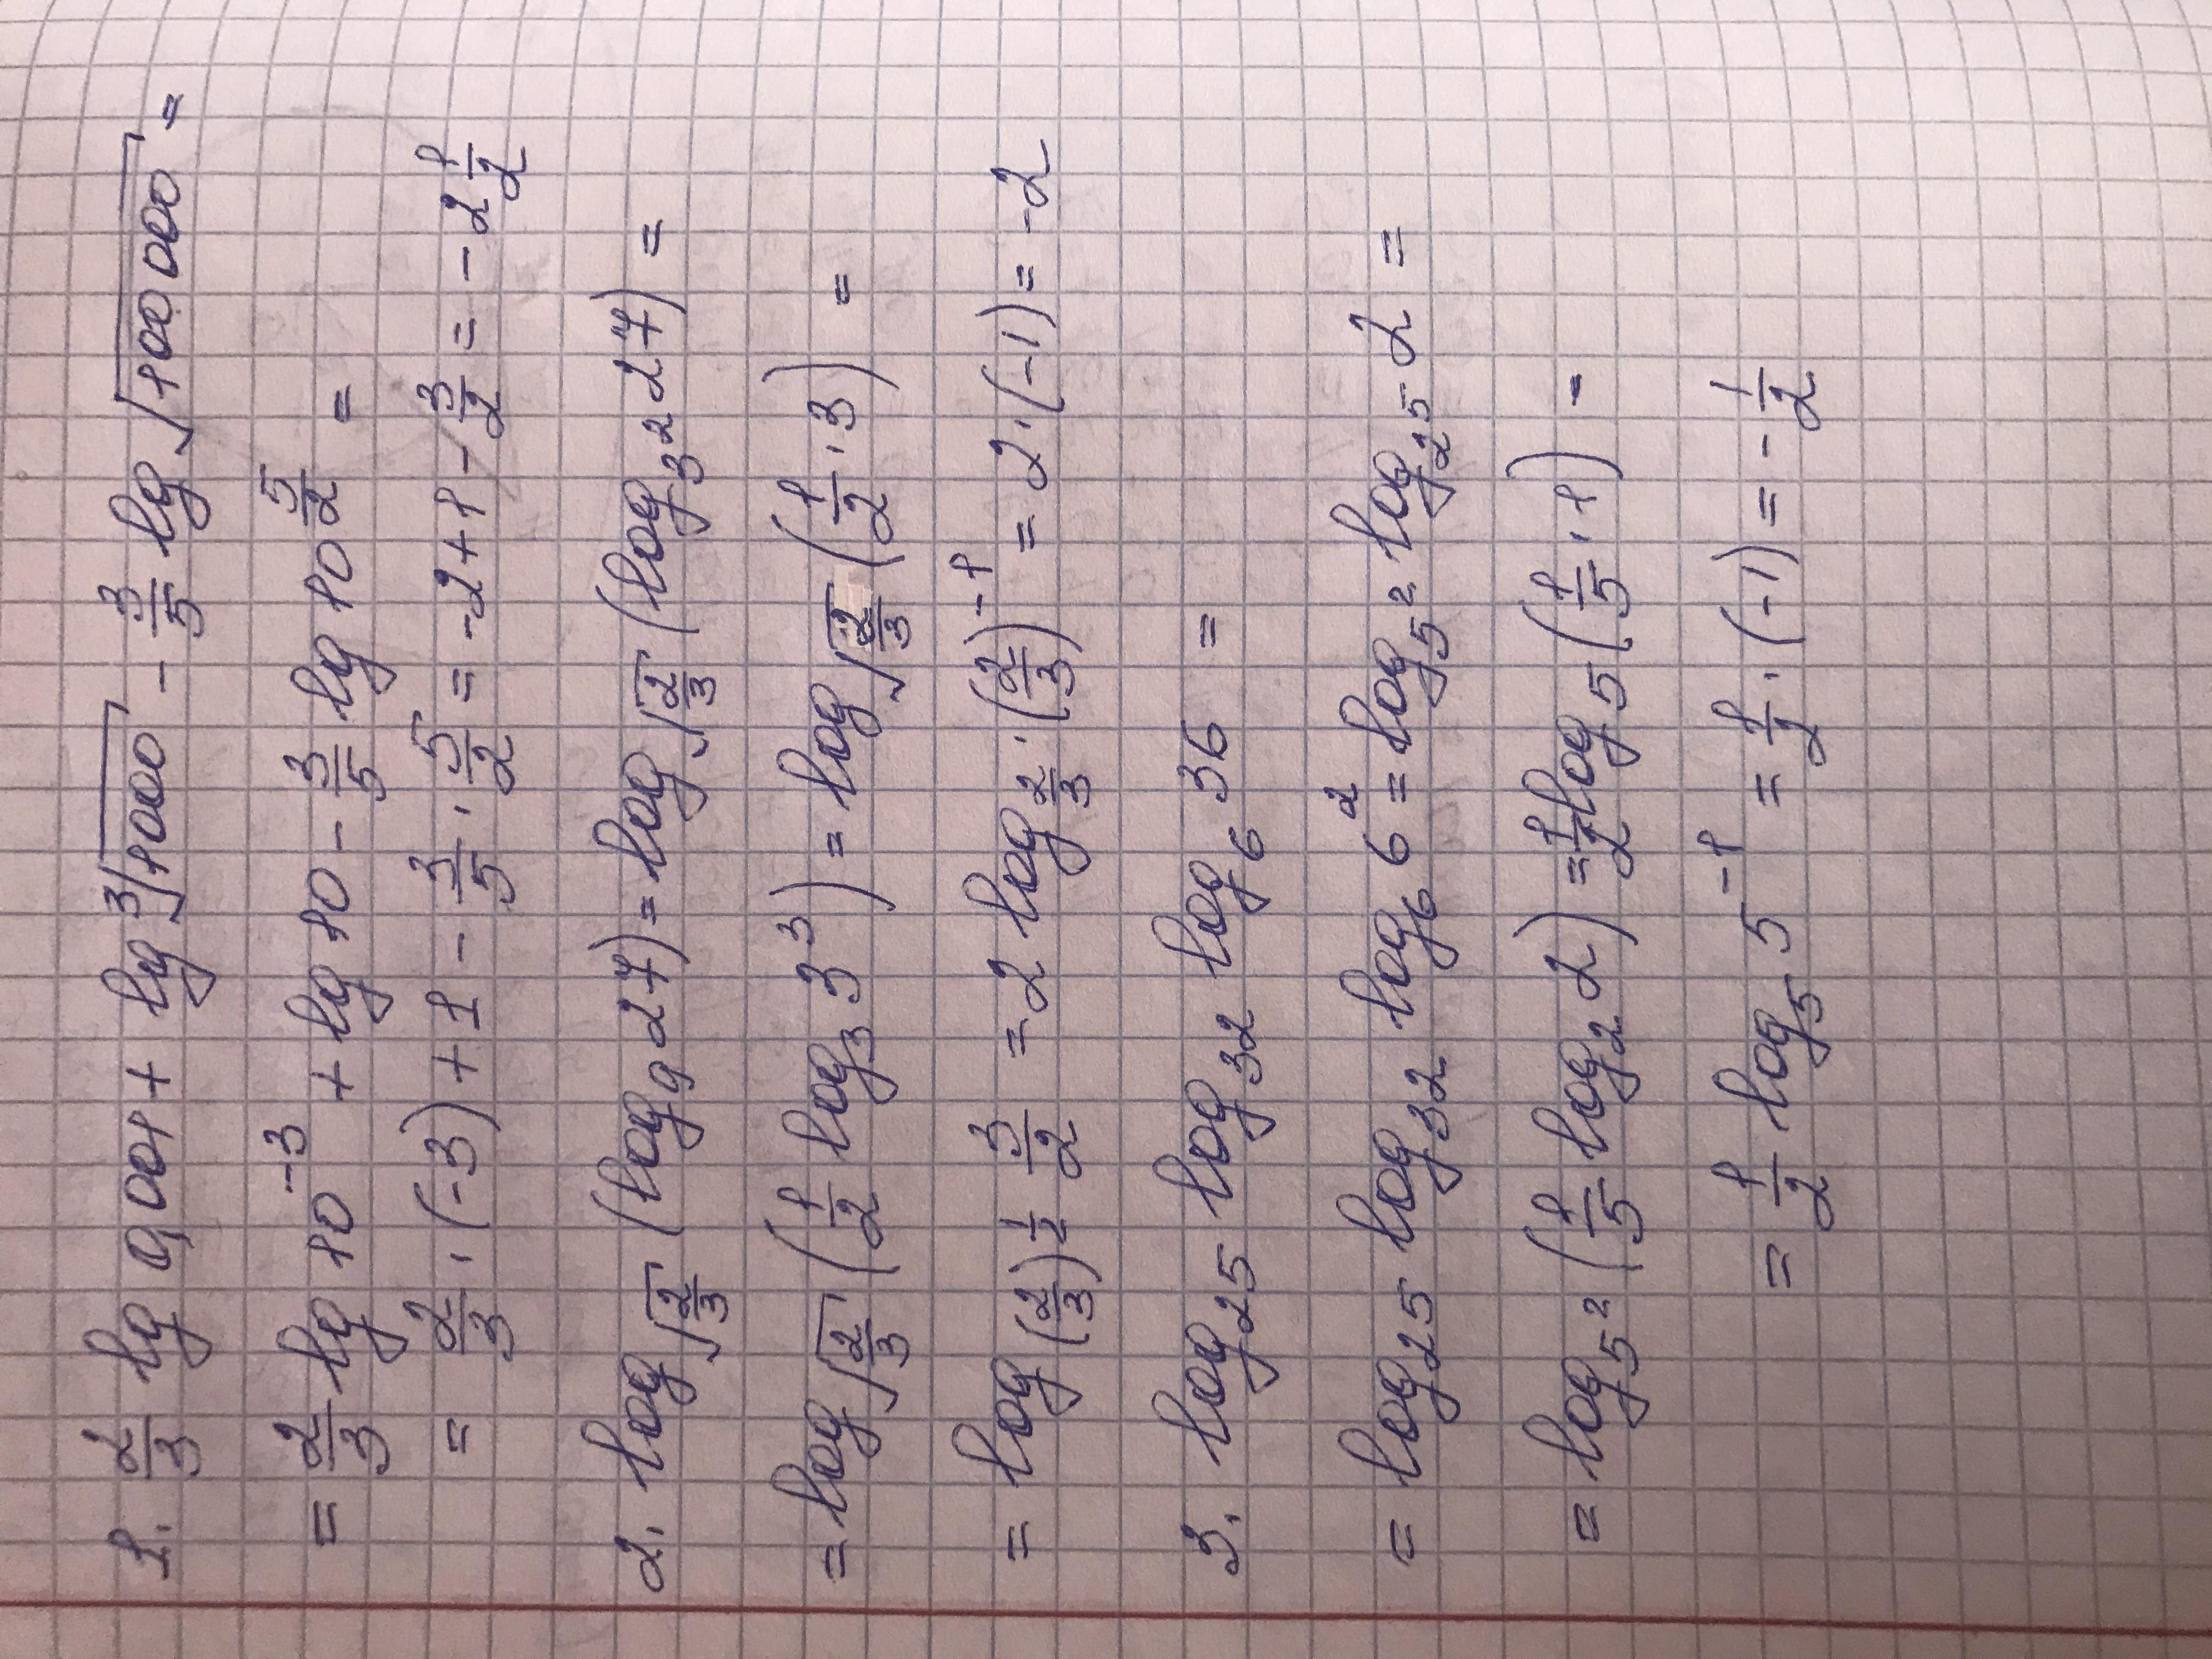 1. 2/3 lg 0,001 + lg ∛1000 - 3/5 lg √100 000 =
= 2/3 lg 10⁻³ + lg 10 - 3/5 lg 10^(5/2) =
= 2/3 · (-3) + 1 - 3/5 · 5/2 = -2 + 1 - 3/2 = -2 1/2
2. log_√(2/3) (log₉ 27) = log_√(2/3) (log_3² 27) =
= log_√(2/3) (1/2 log₃ 3³) = log_√(2/3) (1/2 · 3) =
= log_(2/3)^(1/2) 3/2 = 2 log_2/3 · (2/3)⁻¹ = 2 · (-1) = -2
3. log₂₅ log₃₂ log₆ 36 =
= log₂₅ log₃₂ log₆ 6² = log_5² log_2⁵ 2 =
= log_5² (1/5 log₂ 2) = 1/2 log₅ (1/5 · 1) -
= 1/2 log₅ 5⁻¹ = 1/2 · (-1) = - 1/2